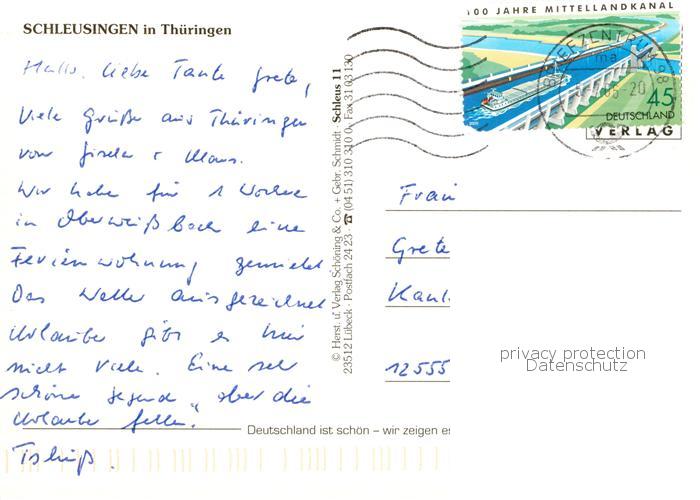 SCHLEUSINGEN in Thüringen
Hallo. liebe Tante Grete,
Viele Grüße aus Thüringen
von Gisela + Klaus.
Wir haben für 1 Woche
in Oberweißbach eine
Ferienwohnung gemietet
Das Wetter ausgezeichnet
Urlauber gibt es hier
nicht viele. Eine sehr
schöne Gegend, aber die
Urlauber fehlen.
Tschüß.
© Herst. u. Verlag Schöning & Co. + Gebr. Schmidt · Schleus 11
23512 Lübeck · Postfach 24 23 · ☎ (04 51) 310 310 · Fax 31 03 130
100 JAHRE MITTELLANDKANAL
45
DEUTSCHLAND
BRIEFZENTRUM
-20
VERLAG
Frau
Grete
12555
privacy protection
Datenschutz
Deutschland ist schön – wir zeigen es